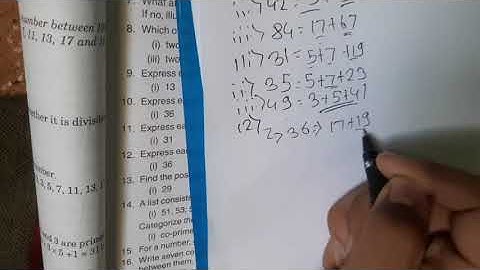 umber between 1
11, 13, 17 and
ether it is divis
umber.
3, 5, 7, 11, 13, 1
and 3 are prim
× 5 + 1 = 31
7. What
If no, illu
8. Which o
(i) two
(iii) two
9. Express e
(i) 13
10. Express e
(i) 36
11. Express ea
(i) 31
12. Express ea
(i) 36
13. Find the pos
(i) 29
14. A list consists
(i) 51, 53, 5
Categorize the
(i) co-prime
15. For a number,
16. Write seven co
between them.
ii> 42 =
iii> 84 = 17+67
11) i> 31 = 5+7+19
ii> 35 = 5+7+23
iii> 49 = 3+5+41
12) 2> 36 => 17+19